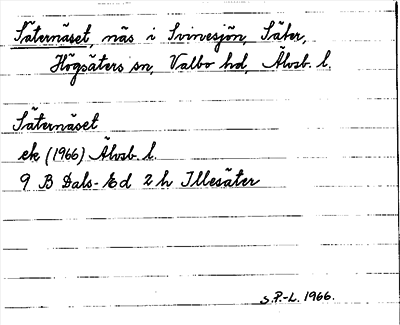 Säternäset, näs i Svinesjön, Säter,
Högsäters sn, Valbo hd, Älvsb. l.
Säternäset
ek (1966) Älvsb. l.
9 B Dals-Ed 2 h Illesäter
S.P.-L. 1966.